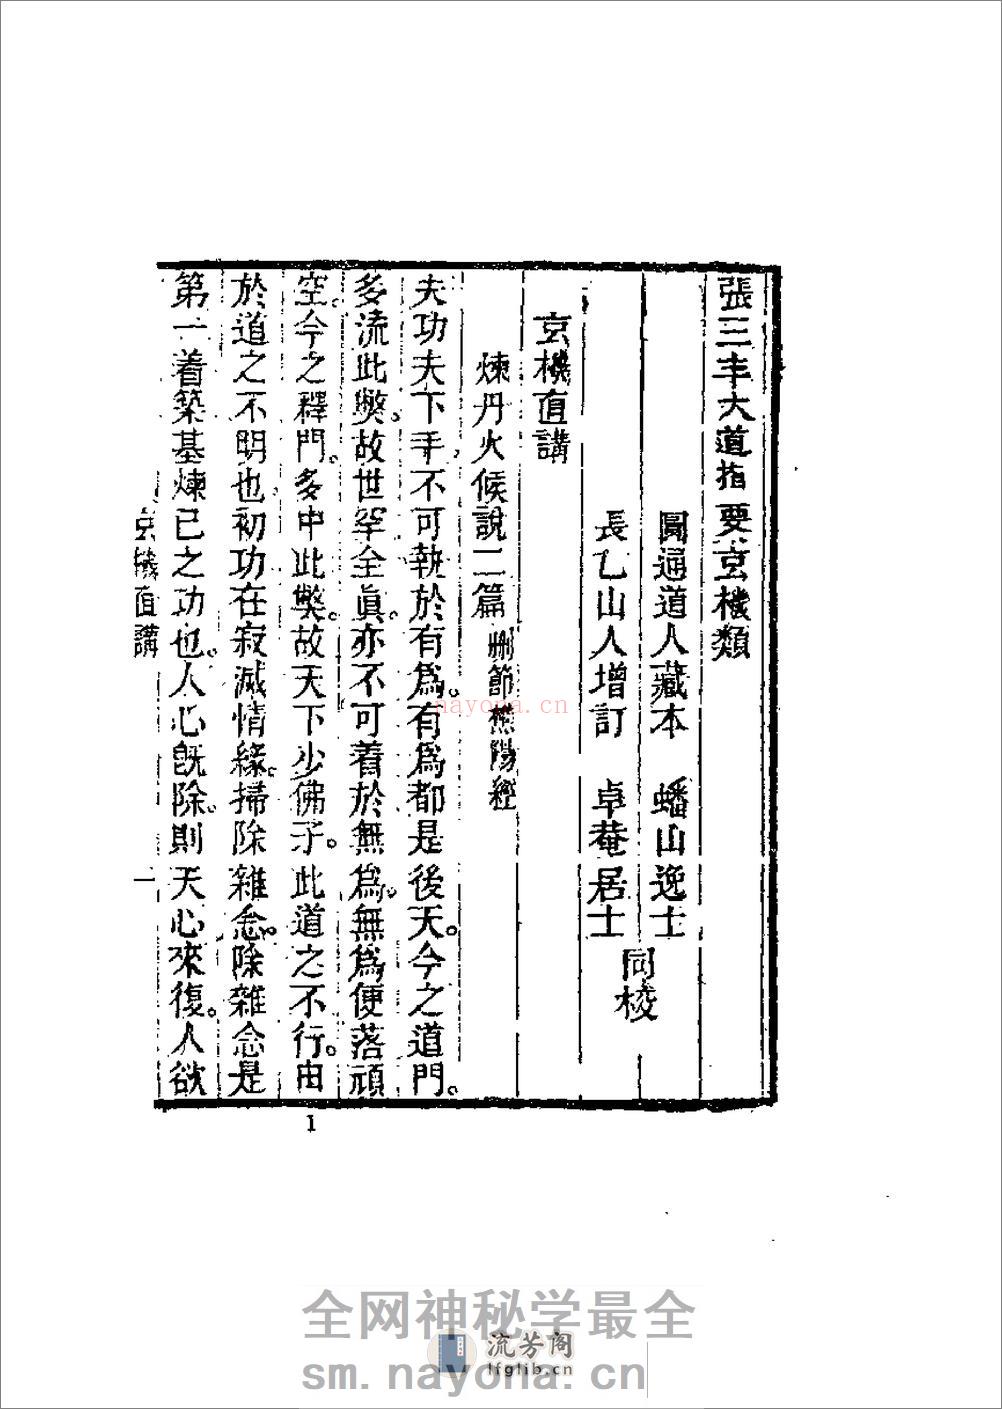 張三丰大道指要玄機類
圓通道人藏本　蟠山逸士
長乙山人增訂　卓菴居士
同校
玄機直講
煉丹火候說二篇　刪節樵陽經
夫功夫下手不可執於有爲。有爲都是後天。今之道門。
多流此弊。故世罕全眞。亦不可着於無爲。無爲便落頑
空。今之釋門。多中此弊。故天下少佛子。此道之不行。由
於道之不明也。初功在寂滅情緣。掃除雜念。除雜念是
第一着築基煉己之功也。人心旣除。則天心來復。人欲
玄機直講
一
1
nayona.cn
全网神秘学最全
流芳阁
lfglib.cn
sm.nayona.cn